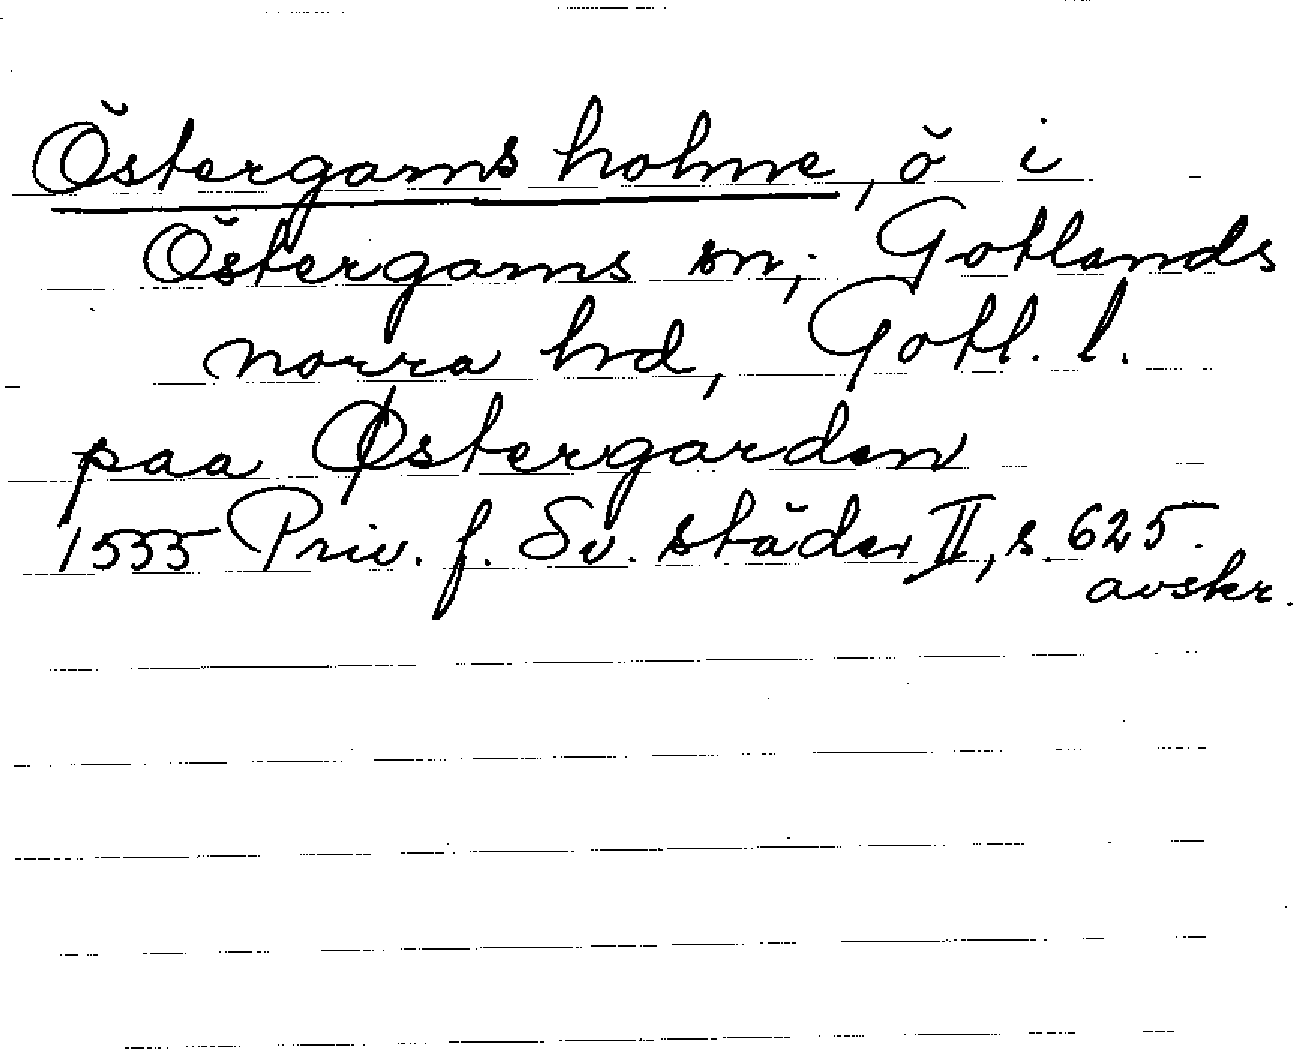 Östergarns holme, ö i
Östergarns sn, Gotlands
norra hd, Gotl. l.
paa Østergarden
1535 Priv. f. Sv. städer II, s. 625.
avskr.